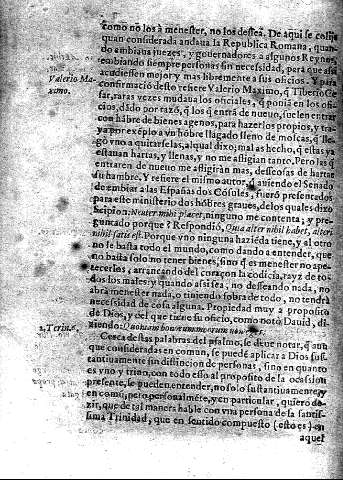 como no los à menester, no los dessea. De aqui se colije
quan considerada andaua la Republica Romana, quan-
do embiaua juezes, y gouernadores a algunos Reynos,
embiando siempre personas sin necessidad, para que assi
acudiessen mejor y mas libremente a sus oficios. Y para
Valerio Ma-
ximo.
confirmació desto refiere Valerio Maximo, q̃ Tiberio Ce-
sar, raras vezes mudaua los oficiales, q̃ ponia en los ofi-
cios, dádo por razó, q̃ los q̃ entrá de nueuo, suelen entrar
con hábre de bienes agenos, para hazerlos propios, y tra-
ya por exéplo a vn hóbre llagado lleno de moscas, q̃ lle-
gó vno a quitarselas, al qual dixo; mal as hecho, q̃ estas ya
estauan hartas, y llenas, y no me afligian tanto. Pero las q̃
entraren de nueuo me afligirán mas, desseosas de hartar
su hambre. Y refiere el mismo autor, q̃ auiendo el Senado
de embiar a las Españas dos Cósules, fueró presentados
para este ministerio dos hóbres graues, de los quales dixo
Scipion. Neuter mihi placet, ninguno me contenta; y pre-
guntado porque? Respondió, Quia alter nihil habet, alteri
nihil satis est. Porque vno ninguna haziéda tiene, y al otro
no le basta todo el mundo, como dando a entender, que
no basta solo no tener bienes, sino q̃ es menester no ape-
tecerlos, arrancando del coraçon la codicia, rayz de to-
dos los males: y quando assi sea, no desseando nada, no
abrá menester nada, o teniendo sobra de todo, no tendrá
necessidad de cosa alguna. Propiedad muy a proposito
de Dios, y del que tiene su oficio, como notó Dauid, di-
ziendo: Quoniam bonorum meorum non eges.
Cerca destas palabras del psalmo, se deue notar, q̃ aun
que consideradas en comun, se puedé aplicar a Dios sus-
tantiuamente sin distincion de personas, sino en quanto
es vno y trino, con todo esso al proposito de la ocasion
presente, se pueden entender, no solo sustantiuamente, y
en comú, pero personalméte, y en particular, quiero de-
zir, que de tal manera hable con vna persona de la santis-
sima Trinidad, que en sentido compuesto (esto es) en
aquel